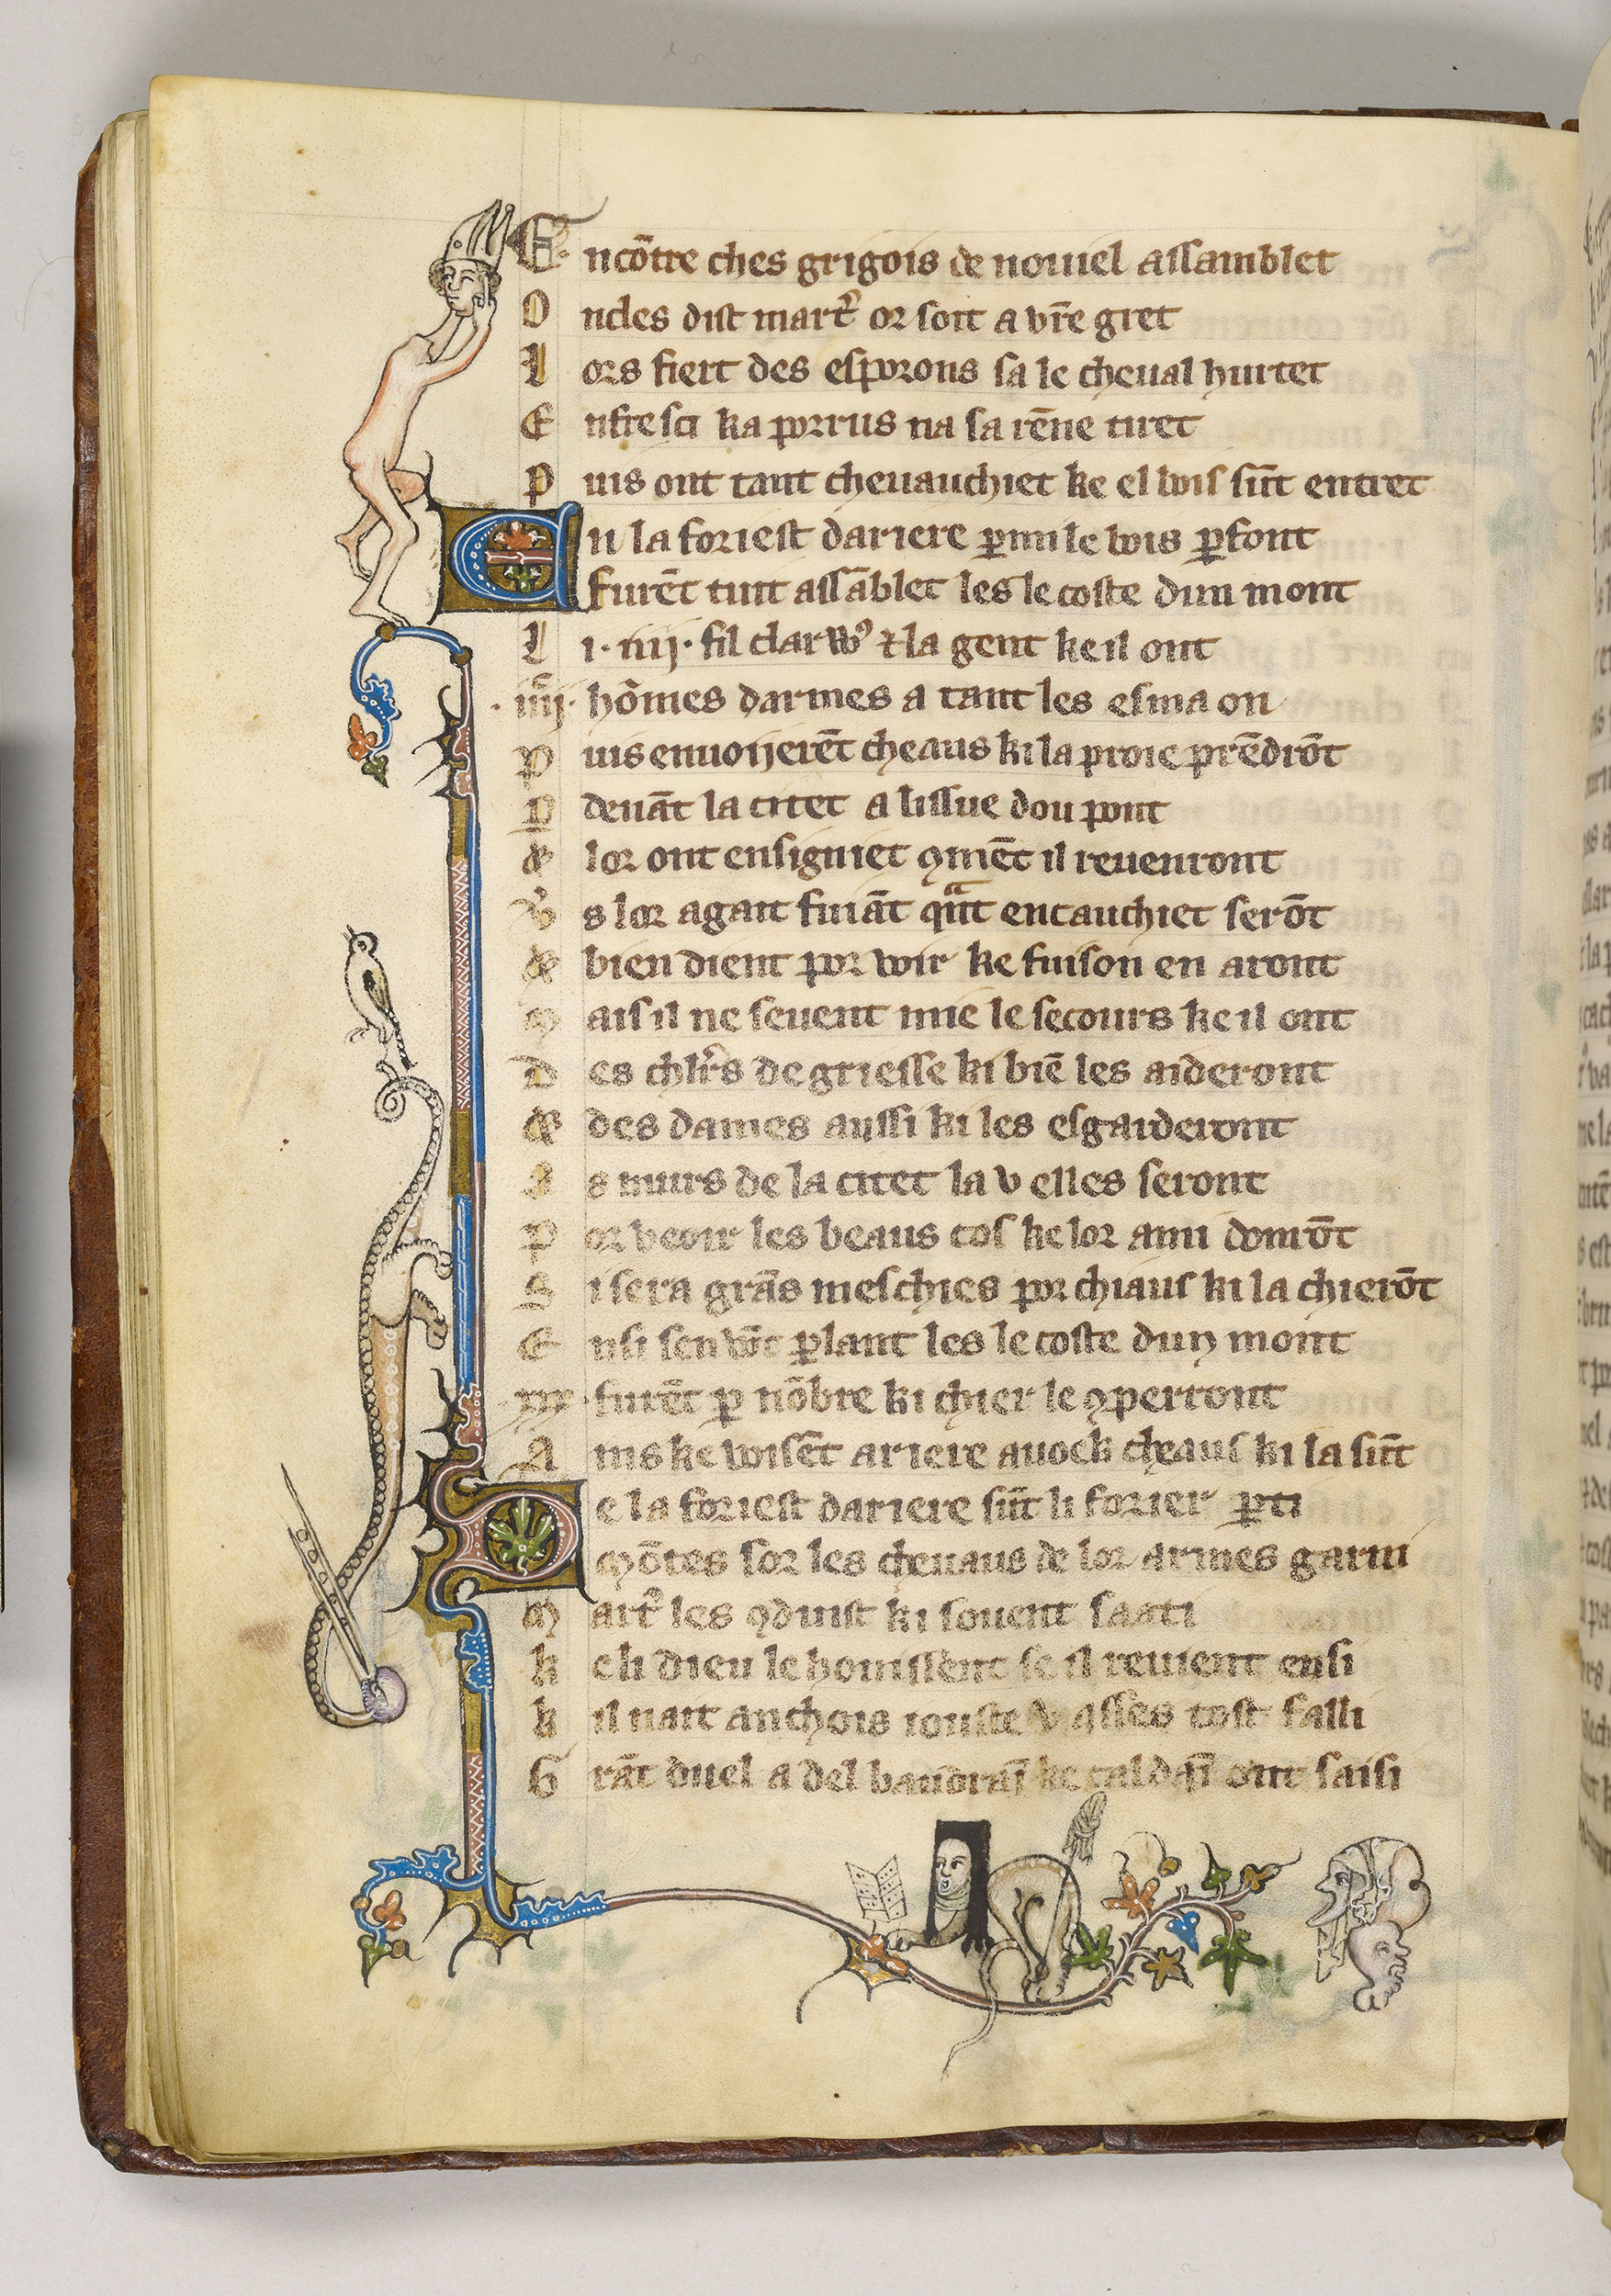 E ncōtre ches grigois de nouuel assamblet
O ncles dist mart᷑ or soit a vr̄e gret
L ors fiert des esporons sa le cheual hurtet
E nfresci ka porrus na sa rēne tiret
P uis ont tant cheuauchiet ke el bois sūt entret
En la foriest dariere ꝑmi le bois ꝑfont
furēt tuit assāblet les le coste dun mont
L i · iiij · fil clarꝰ ⁊ la gent ke il ont
· iiij · hōmes darmes a tant les esma on
P uis enuoijerēt cheaus ki la proie prēdrōt
P deuāt la citet a lissue dou pont
& lor ont ensigniet ꝯmēt il reuenront
V s lor agait fuiāt qᵃnt encauchiet serōt
& bien dient por voir ke fuison en aront
M ais il ne seuent mie le secours ke il ont
D es chlr̄s de griesse ki biē les aideront
& des dames aussi ki les esgarderont
A s murs de la citet la v elles seront
P or veoir les beaus cos ke lor ami donrōt
S i sera grās meschies por chiaus ki la chierōt
E nsi sen vōt ꝑlant les le coste dun mont
furēt ꝑ nōbre ki chier le ꝯperront
A ins ke voisēt ariere auoek cheaus ki la sūt
De la foriest dariere sūt li forier ꝑti
Mōtes sor les cheuaus de lor armes garni
M art᷑ les ꝯduist ki souent saati
K e li dieu le honissent se il reuient ensi
K il nait anchois iouste v asses tost falli
G rāt duel a del baudraī ke caldaī ont saisi